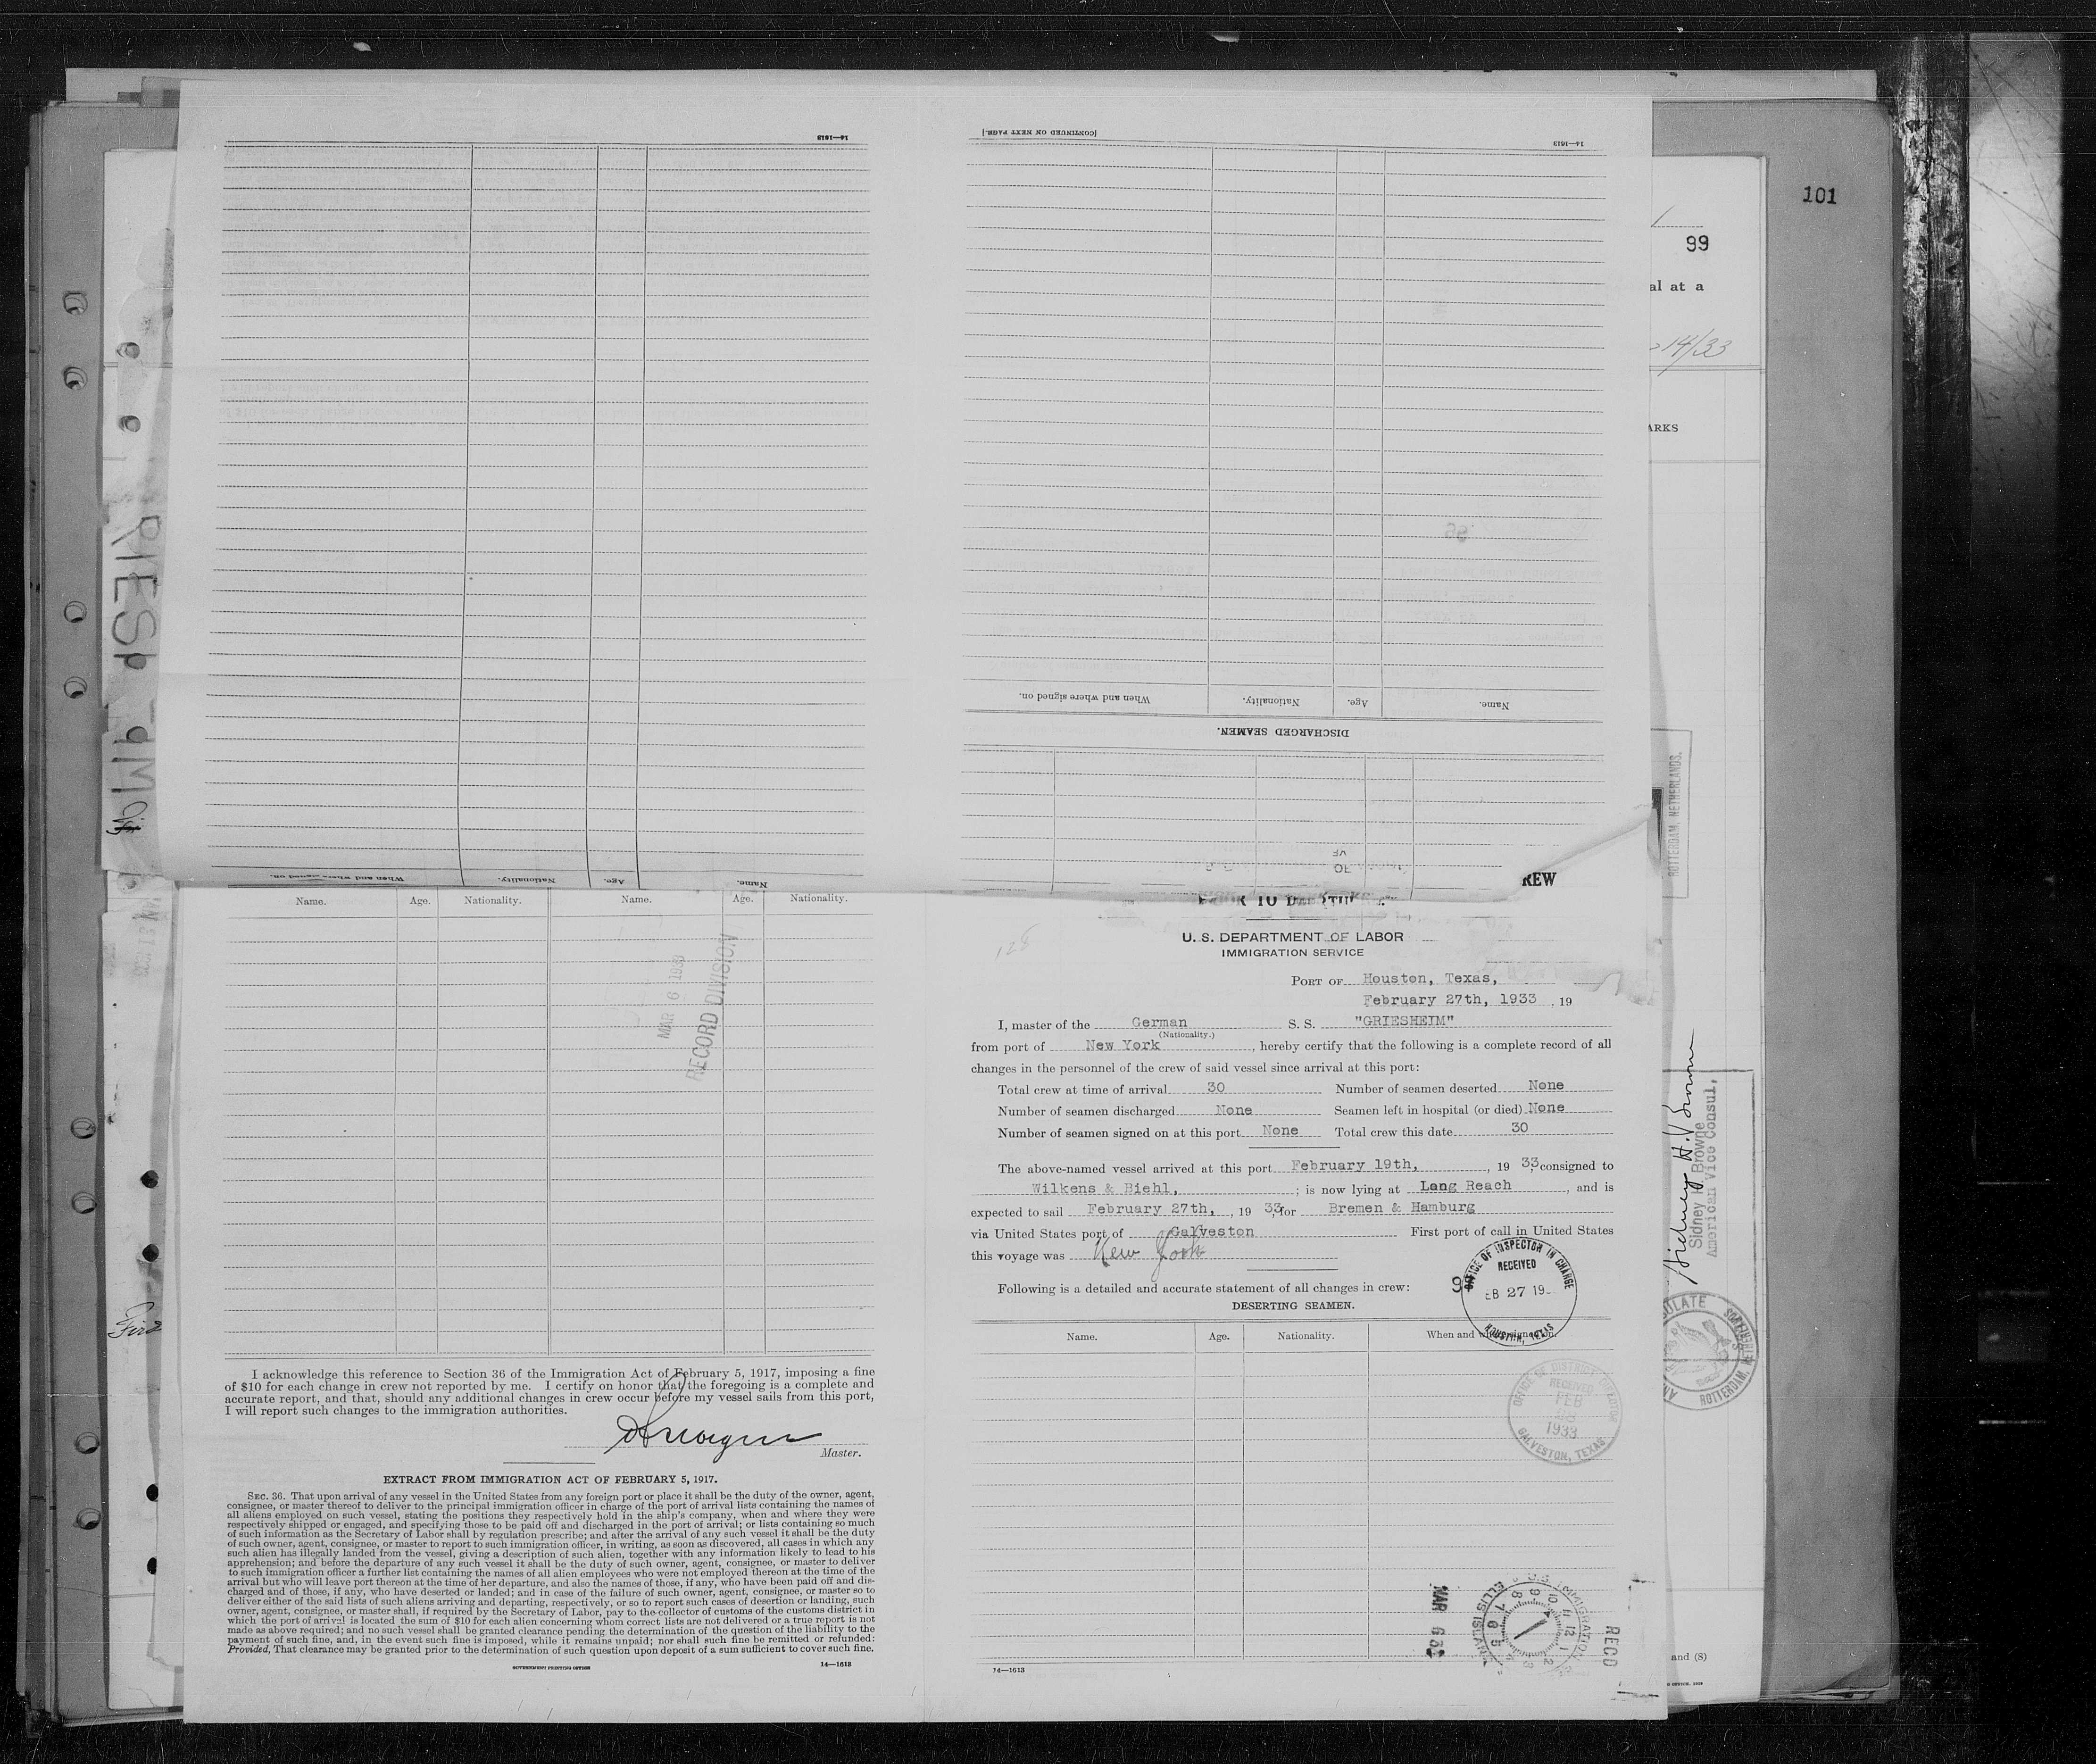 14—1613
[CONTINUED ON NEXT PAGE.]
14—1613
101
99
al at a
14/33
ARKS
When and where signed on.
Nationality.
Age.
Name.
DISCHARGED SEAMEN.
When and where signed on.
Nationality.
Age.
Name.
ROTTERDAM, NETHERLANDS.
Name.
Age.
Nationality.
Name.
Age.
Nationality.
MAR 6 1933
RECORD DIVISION
I acknowledge this reference to Section 36 of the Immigration Act of February 5, 1917, imposing a fine
of $10 for each change in crew not reported by me. I certify on honor that the foregoing is a complete and
accurate report, and that, should any additional changes in crew occur before my vessel sails from this port,
I will report such changes to the immigration authorities.
Master.
EXTRACT FROM IMMIGRATION ACT OF FEBRUARY 5, 1917.
SEC. 36. That upon arrival of any vessel in the United States from any foreign port or place it shall be the duty of the owner, agent,
consignee, or master thereof to deliver to the principal immigration officer in charge of the port of arrival lists containing the names of
all aliens employed on such vessel, stating the positions they respectively hold in the ship's company, when and where they were
respectively shipped or engaged, and specifying those to be paid off and discharged in the port of arrival; or lists containing so much
of such information as the Secretary of Labor shall by regulation prescribe; and after the arrival of any such vessel it shall be the duty
of such owner, agent, consignee, or master to report to such immigration officer, in writing, as soon as discovered, all cases in which any
such alien has illegally landed from the vessel, giving a description of such alien, together with any information likely to lead to his
apprehension; and before the departure of any such vessel it shall be the duty of such owner, agent, consignee, or master to deliver
to such immigration officer a further list containing the names of all alien employees who were not employed thereon at the time of the
arrival but who will leave port thereon at the time of her departure, and also the names of those, if any, who have been paid off and dis-
charged and of those, if any, who have deserted or landed; and in case of the failure of such owner, agent, consignee, or master so to
deliver either of the said lists of such aliens arriving and departing, respectively, or so to report such cases of desertion or landing, such
owner, agent, consignee, or master shall, if required by the Secretary of Labor, pay to the collector of customs of the customs district in
which the port of arrival is located the sum of $10 for each alien concerning whom correct lists are not delivered or a true report is not
made as above required; and no such vessel shall be granted clearance pending the determination of the question of the liability to the
payment of such fine, and, in the event such fine is imposed, while it remains unpaid; nor shall such fine be remitted or refunded:
Provided, That clearance may be granted prior to the determination of such question upon deposit of a sum sufficient to cover such fine.
GOVERNMENT PRINTING OFFICE
14—1613
REW
TO
128
U. S. DEPARTMENT OF LABOR
IMMIGRATION SERVICE
PORT OF Houston, Texas,
February 27th, 1933 , 19
I, master of the German S. S. "GRIESHEIM"
(Nationality.)
from port of New York , hereby certify that the following is a complete record of all
changes in the personnel of the crew of said vessel since arrival at this port:
Total crew at time of arrival 30 Number of seamen deserted None
Number of seamen discharged None Seamen left in hospital (or died) None
Number of seamen signed on at this port None Total crew this date 30
The above-named vessel arrived at this port February 19th, , 19 33, consigned to
Wilkens & Biehl, ; is now lying at Long Reach , and is
expected to sail February 27th, , 19 33, for Bremen & Hamburg
via United States port of Galveston First port of call in United States
this voyage was New York
Following is a detailed and accurate statement of all changes in crew:
DESERTING SEAMEN.
Name.
Age.
Nationality.
When and where signed on.
OFFICE OF INSPECTOR IN CHARGE
RECEIVED
EB 27 19
HOUSTON, TEXAS
OFFICE OF DISTRICT DIRECTOR
RECEIVED
FEB
1933
GALVESTON, TEXAS
MAR 6 33
U.S. IMMIGRATION
ELLIS ISLAND
RECO
14—1613
Sidney H. Browne
Sidney H. Browne
American Vice Consul,
ROTTERDAM, NETHERLANDS
and (8)